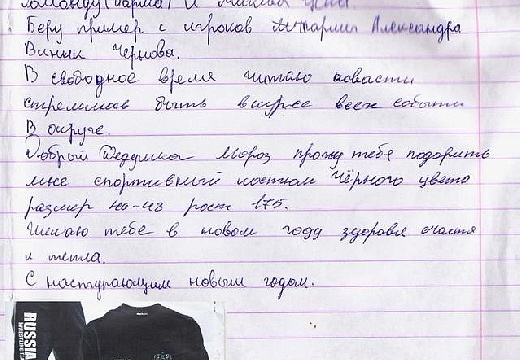 команду
Беру пример с игроков Александра
Чернова.
В свободное время читаю новости
стремлюсь быть в курсе всех событи
В округе.
Добрый Дедушка Мороз прошу тебе подарить
мне спортивный костюм Чёрного цвета
размер рост 175.
Желаю тебе в новом году здоровя счастя
и тепла.
С наступающим новым годом.
RUSSIA